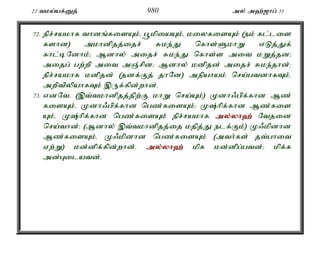 22 வமய்யக்னுத் 980 அல் அஹ்ஜாப் 33
72. நிச்சயமாக வானங்களையும், பூமியையும், மலைகளையும் (நம் கட்டளை
களான) அமானிதத்தைச் சுமந்து கொள்ளுமாறு எடுத்துக்
காட்டினோம்; ஆனால் அதைச் சுமந்து கொள்ள அவை மறுத்தன;
அதைப் பற்றி அவை அஞ்சின; ஆனால் மனிதன் அதைச் சுமந்தான்;
நிச்சயமாக மனிதன் (தனக்குத் தானே) அநியாயம் செய்பவனாகவும்,
அறிவிலியாகவும் இருக்கின்றான்.
73. எனவே, (இவ்வமானிதத்திற்கு மாறு செய்யும்) முனாஃபிக்கான ஆண்
களையும், முனாஃபிக்கான பெண்களையும்; முஷ்ரிக்கான ஆண்களை
யும், முஷ்ரிக்கான பெண்களையும் நிச்சயமாக அல்லாஹ் வேதனை
செய்வான்; (ஆனால் இவ்வமானிதத்தை மதித்து நடக்கும்) முஃமினான
ஆண்களையும், முஃமினான பெண்களையும் (அவர்கள் தவ்பாவை
ஏற்று) மன்னிக்கின்றான். அல்லாஹ் மிக மன்னிப்பவன்; மிக்க
அன்புடையவன்.